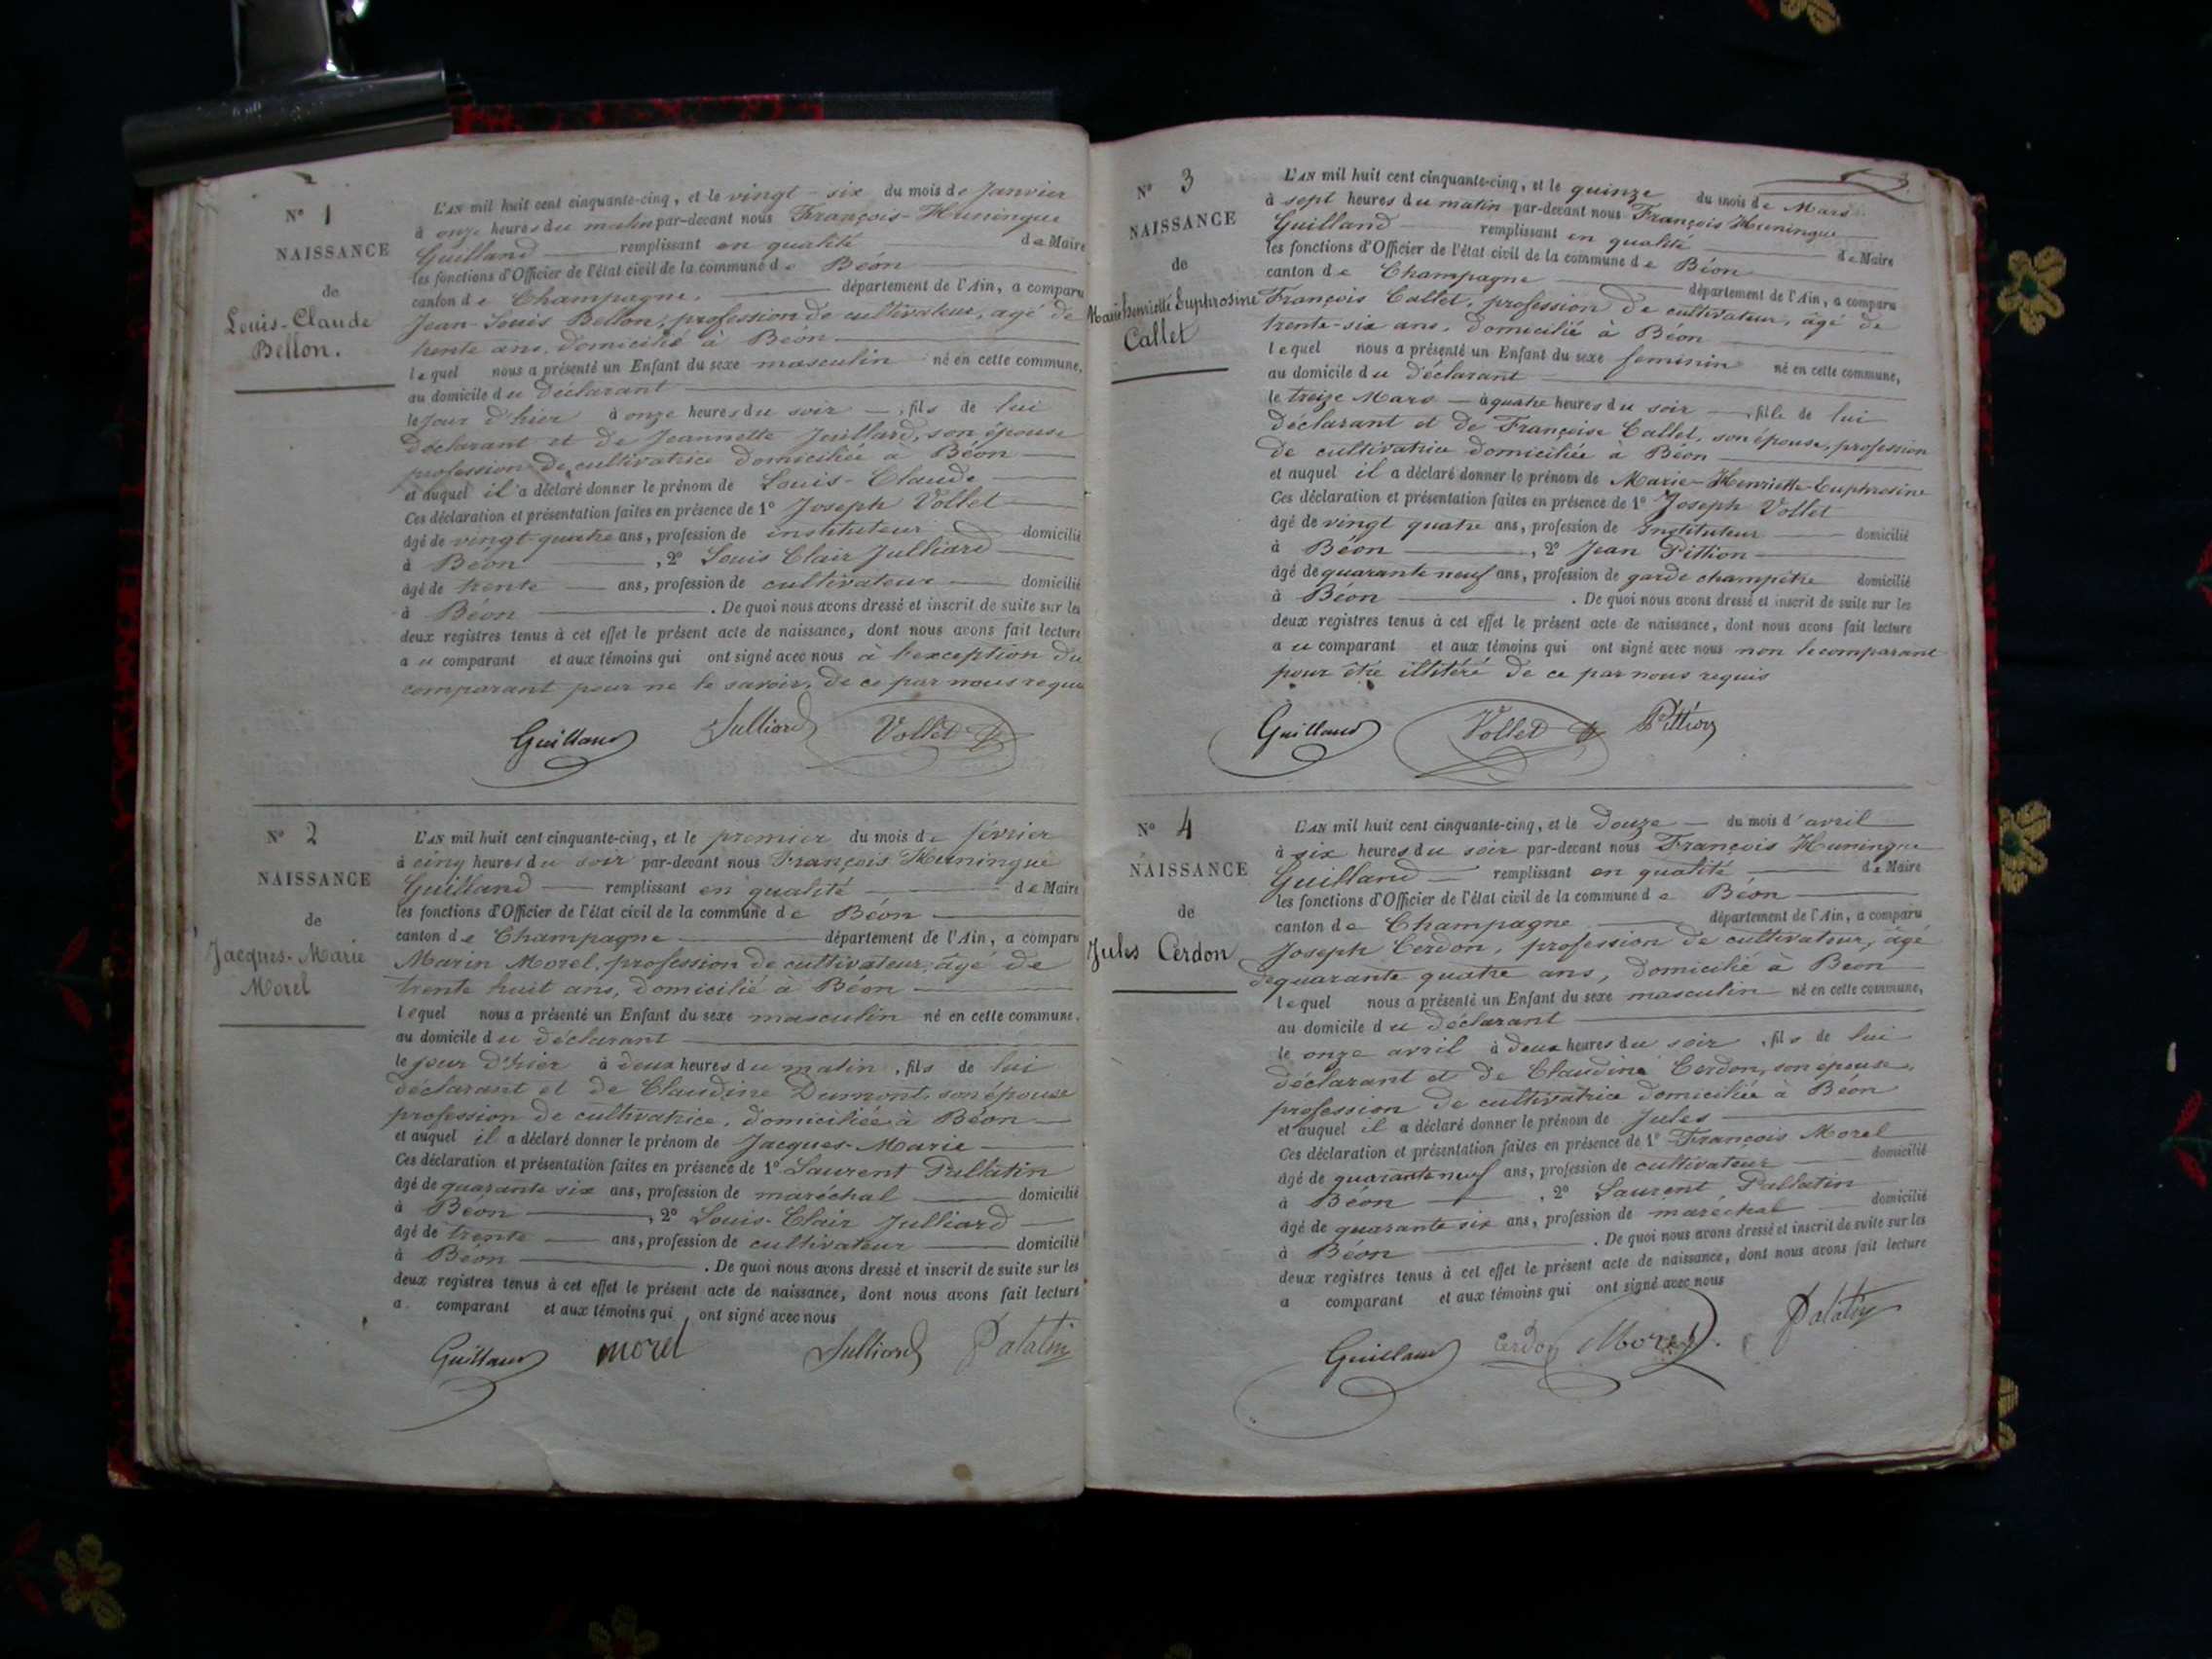 N° 1
NAISSANCE
de
Louis-Claude
Bellon.
L'AN mil huit cent cinquante-cinq, et le vingt-six du mois de Janvier
à onze heures du matin par-devant nous François-Huningue
Guilland remplissant en qualité de Maire
les fonctions d'Officier de l'état civil de la commune de Béon
canton de Champagne, département de l'Ain, a comparu
Jean-Louis Bellon, profession de cultivateur, agé de
trente ans, domicilié à Béon
lequel nous a présenté un Enfant du sexe masculin né en cette commune,
au domicile du déclarant
le jour d'hier à onze heures du soir, fils de lui
déclarant et de Jeannette Juillard, son épouse
profession de cultivatrice domiciliée à Béon
et auquel il a déclaré donner le prénom de Louis-Claude
Ces déclaration et présentation faites en présence de 1° Joseph Vollet
âgé de vingt-quatre ans, profession de instituteur domicilié
à Béon, 2° Louis Clair Julliard
âgé de trente ans, profession de cultivateur domicilié
à Béon. De quoi nous avons dressé et inscrit de suite sur les
deux registres tenus à cet effet le présent acte de naissance, dont nous avons fait lecture
au comparant et aux témoins qui ont signé avec nous à l'exception du
comparant pour ne le savoir, de ce par nous requis
Guilland Julliard Vollet
N° 2
NAISSANCE
de
Jacques-Marie
Morel
L'AN mil huit cent cinquante-cinq, et le premier du mois de février
à cinq heures du soir par-devant nous François Huningue
Guilland remplissant en qualité de Maire
les fonctions d'Officier de l'état civil de la commune de Béon
canton de Champagne département de l'Ain, a comparu
Marin Morel, profession de cultivateur, âgé de
trente huit ans, domicilié à Béon
lequel nous a présenté un Enfant du sexe masculin né en cette commune,
au domicile du déclarant
le jour d'hier à deux heures du matin, fils de lui
déclarant et de Claudine Dumont, son épouse
profession de cultivatrice, domiciliée à Béon
et auquel il a déclaré donner le prénom de Jacques-Marie
Ces déclaration et présentation faites en présence de 1° Laurent Pallatin
âgé de quarante six ans, profession de maréchal domicilié
à Béon, 2° Louis-Clair Julliard
âgé de trente ans, profession de cultivateur domicilié
à Béon. De quoi nous avons dressé et inscrit de suite sur les
deux registres tenus à cet effet le présent acte de naissance, dont nous avons fait lecture
a comparant et aux témoins qui ont signé avec nous
Guilland morel Julliard Palatin
3
N° 3
NAISSANCE
de
Marie Henriette Euphrosine
Callet
L'AN mil huit cent cinquante-cinq, et le quinze du mois de Mars
à sept heures du matin par-devant nous François Huningue
Guilland remplissant en qualité de Maire
les fonctions d'Officier de l'état civil de la commune de Béon
canton de Champagne département de l'Ain, a comparu
François Callet, profession de cultivateur, âgé de
trente-six ans, domicilié à Béon
lequel nous a présenté un Enfant du sexe feminin né en cette commune,
au domicile du déclarant
le treize Mars à quatre heures du soir, fille de lui
déclarant et de Françoise Callet, son épouse, profession
de cultivatrice domiciliée à Béon
et auquel il a déclaré donner le prénom de Marie-Henriette-Euphrosine
Ces déclaration et présentation faites en présence de 1° Joseph Vollet
âgé de vingt quatre ans, profession de Instituteur domicilié
à Béon, 2° Jean Pittion
âgé de quarante neuf ans, profession de garde champêtre domicilié
à Béon. De quoi nous avons dressé et inscrit de suite sur les
deux registres tenus à cet effet le présent acte de naissance, dont nous avons fait lecture
au comparant et aux témoins qui ont signé avec nous non le comparant
pour être illitéré de ce par nous requis
Guilland Vollet Pittion
N° 4
NAISSANCE
de
Jules Cerdon
L'AN mil huit cent cinquante-cinq, et le douze du mois d'avril
à six heures du soir par-devant nous François Huningue
Guilland remplissant en qualité de Maire
les fonctions d'Officier de l'état civil de la commune de Béon
canton de Champagne département de l'Ain, a comparu
Joseph Cerdon, profession de cultivateur, âgé
de quarante quatre ans, domicilié à Béon
lequel nous a présenté un Enfant du sexe masculin né en cette commune,
au domicile du déclarant
le onze avril à deux heures du soir, fils de lui
déclarant et de Claudine Cerdon, son épouse,
profession de cultivatrice domiciliée à Béon
et auquel il a déclaré donner le prénom de Jules
Ces déclaration et présentation faites en présence de 1° François Morel
âgé de quarante neuf ans, profession de cultivateur domicilié
à Béon, 2° Laurent Pallatin
âgé de quarante six ans, profession de maréchal domicilié
à Béon. De quoi nous avons dressé et inscrit de suite sur les
deux registres tenus à cet effet le présent acte de naissance, dont nous avons fait lecture
a comparant et aux témoins qui ont signé avec nous
Guilland Cerdon Morel Palatin